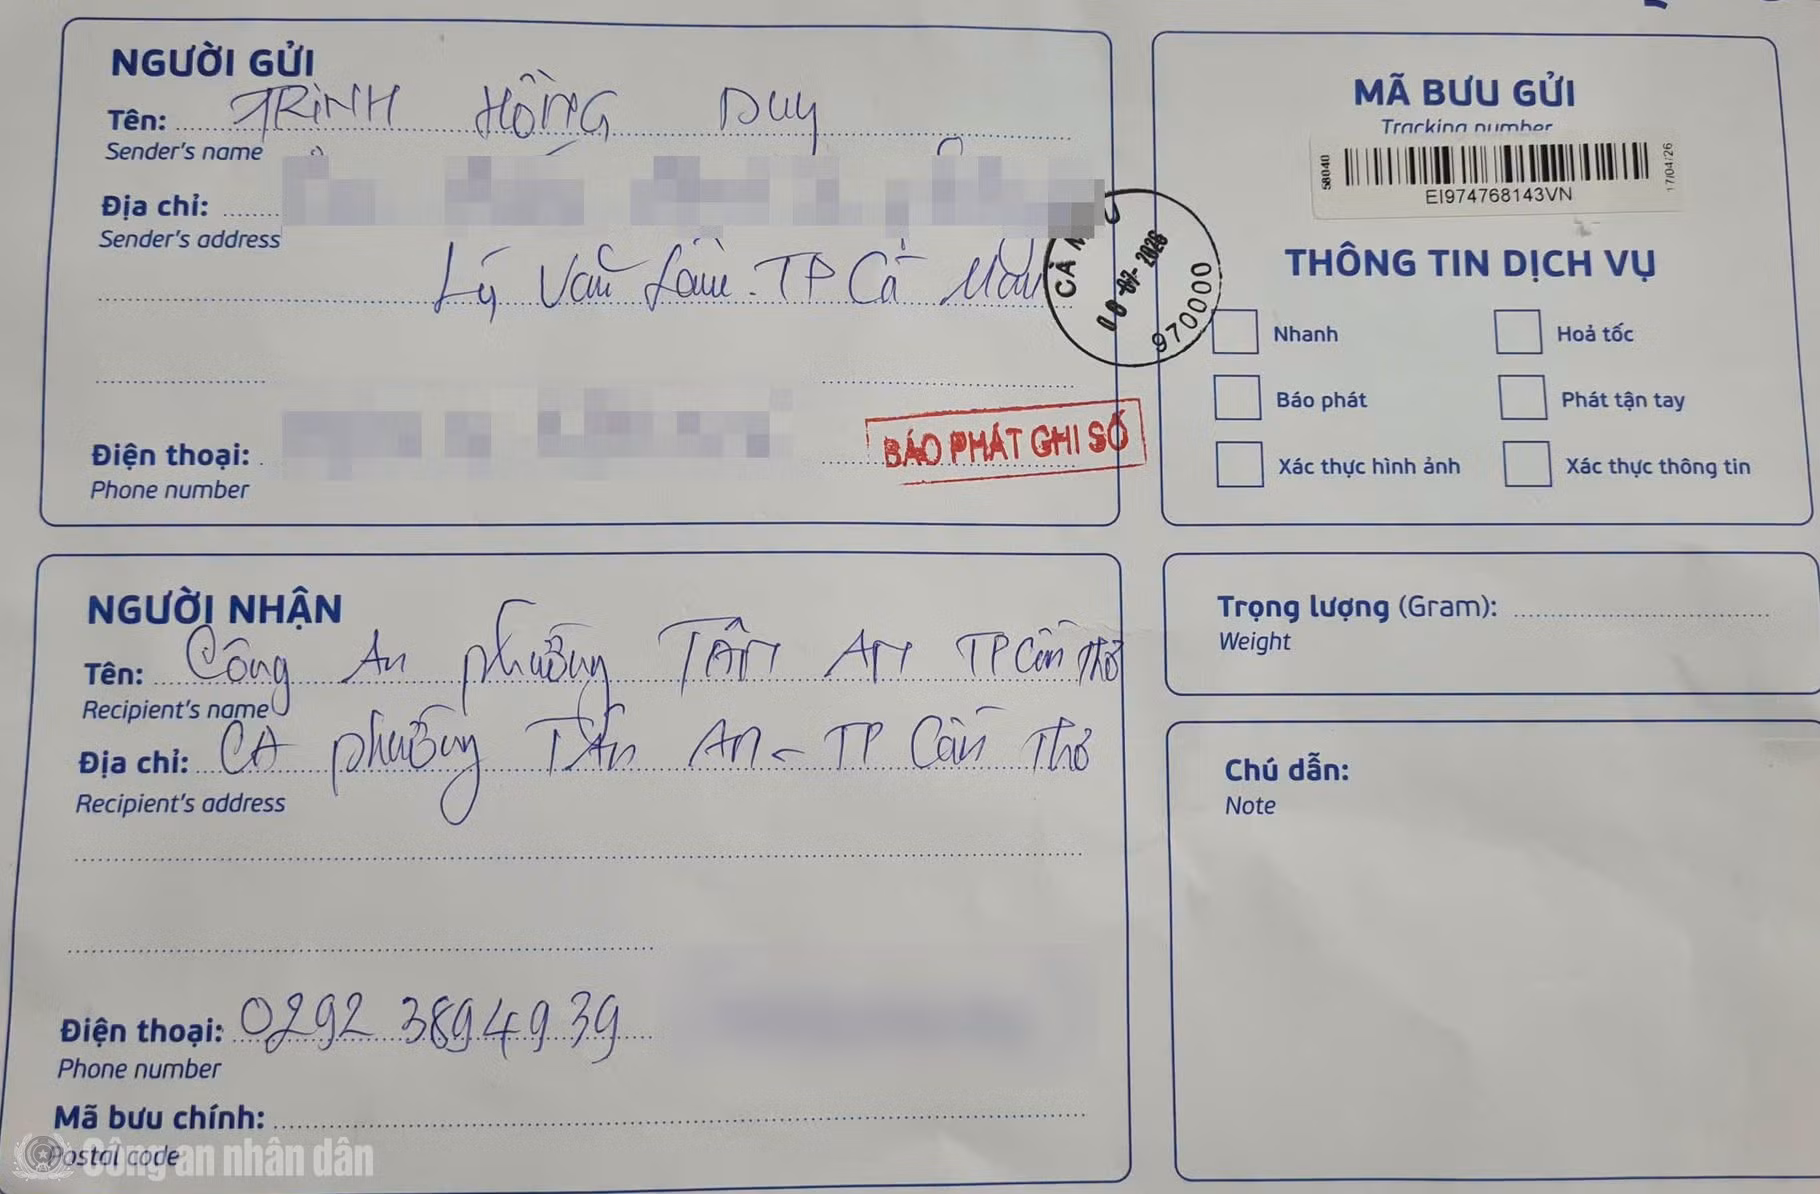 NGƯỜI GỬI
Tên: TRỊNH HỒNG Duy
Sender's name
Địa chỉ:
Sender's address
Lý Văn Lâm. TP Cà Mau
Điện thoại:
Phone number
BÁO PHÁT GHI SỐ
CÀ M
2026
970000
MÃ BƯU GỬI
Tracking number
58040
17/04/26
EI974768143VN
THÔNG TIN DỊCH VỤ
Nhanh
Hoả tốc
Báo phát
Phát tận tay
Xác thực hình ảnh
Xác thực thông tin
NGƯỜI NHẬN
Tên: Công An phường TÂN AN TP Cần Thơ
Recipient's name
Địa chỉ: CA phường TÂN An - TP Cần Thơ
Recipient's address
Điện thoại: 0292 3894939
Phone number
Mã bưu chính:
Postal code
Công an nhân dân
Trọng lượng (Gram):
Weight
Chú dẫn:
Note